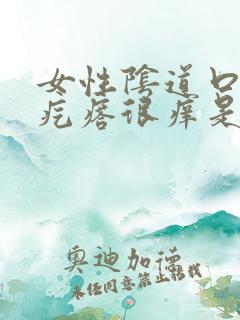 女性陰道口
疙瘩很痒是
奥迪加德
未经同意禁止转载